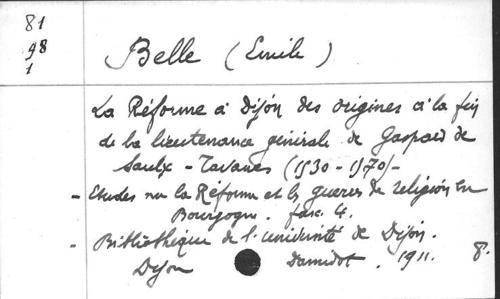 81
98
1
Belle (Emile)
La Réforme à Dijon des origines à la fin
de la lieutenance générale de Gaspard de
Saulx - Tavanes (1530 - 1570) -
- Etudes sur la Réforme et les guerres de religion en
Bourgogne. fasc. 4.
- Bibliothèque de l'Université de Dijon.
Dijon Damidot. 1911. 8.